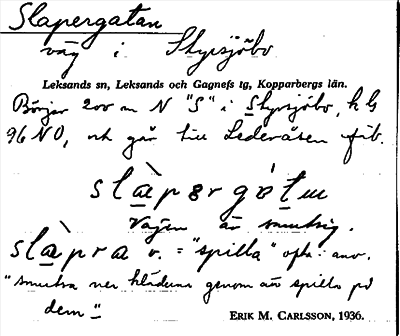 Slapergatan
väg i Styrsjöbo
Leksands sn, Leksands och Gagnefs tg, Kopparbergs län.
Börjar 200 m N "S" i Styrsjöbo, k bl
96 NO, och går till Lederåsen fäb.
slàpərgòtɯ
Vägen är smutsig.
slàpra v. = "spilla" ofta: anv.
"smutsa ner kläderna genom att spilla på
dem"
ERIK M. CARLSSON, 1936.